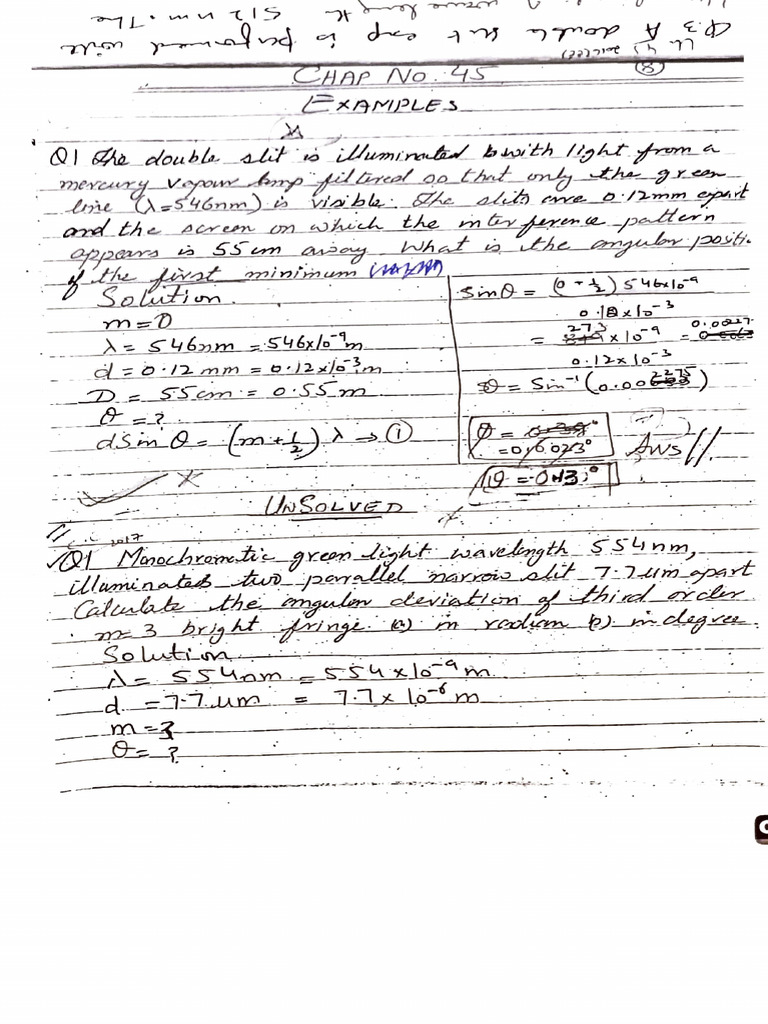 Q.3 A double slit exp is performed with
512 nm. The
(8)
CHAP NO. 45
EXAMPLES
Q1 The double slit is illuminated with light from a
mercury vapour lamp filtered so that only the green
line (λ=546nm) is visible. The slits are 0.12mm apart
and the screen on which the interference pattern
appears is 55 cm away What is the angular positi.
of the first minimum
Solution.
m=0
λ = 546nm = 546x10⁻⁹m
d = 0.12 mm = 0.12x10⁻³m
D = 55cm = 0.55m
θ = ?
dSin θ = (m+½) λ → ①
Sinθ = (0+½) 546x10⁻⁹
0.12x10⁻³
= 273 x10⁻⁹ = 0.00227
0.12x10⁻³
θ = Sin⁻¹ (0.002275)
θ =
Ans //.
θ = 0.13°
UNSOLVED
2017
Q1 Monochromatic green light wavelength 554nm,
illuminates two parallel narrow slit 7.7 um apart
Calculate the angular deviation of third order
m=3 bright fringe (a) in radium (b) in degree.
Solution
λ = 554nm = 554x10⁻⁹m
d = 7.7um = 7.7x10⁻⁶m
m=3
θ = ?